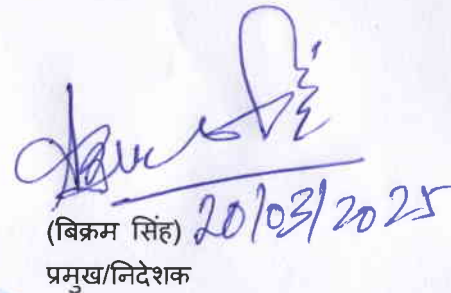 (बिक्रम सिंह) 20/03/2025
प्रमुख/निदेशक